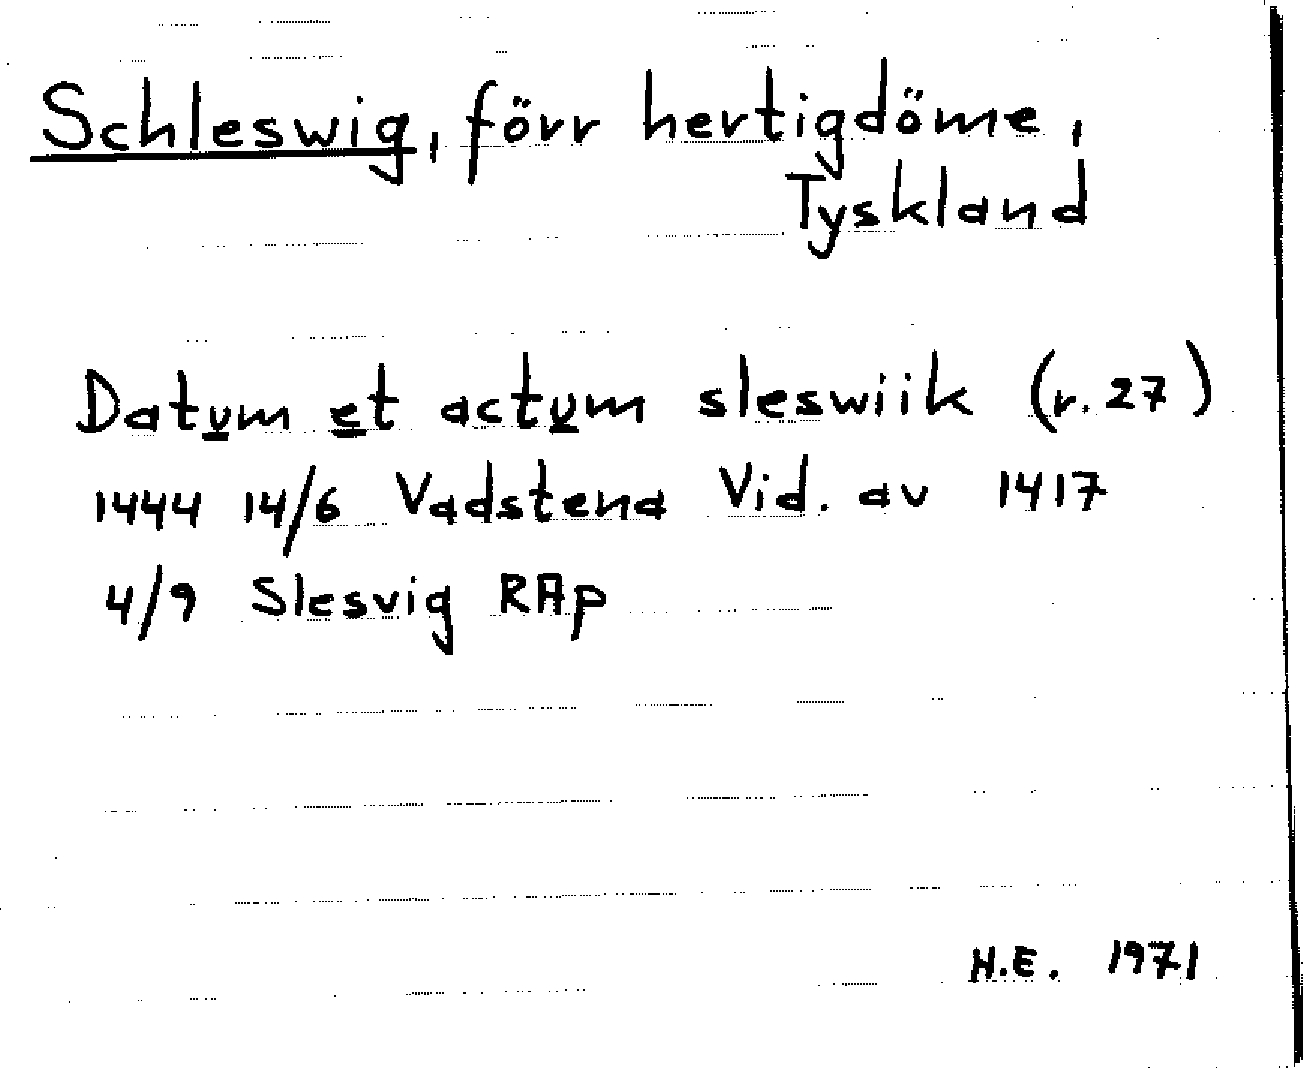 Schleswig, förr hertigdöme,
Tyskland
Datum et actum sleswiik (r. 27)
1444 14/6 Vadstena Vid. av 1417
4/9 Slesvig RAp
H.E. 1971